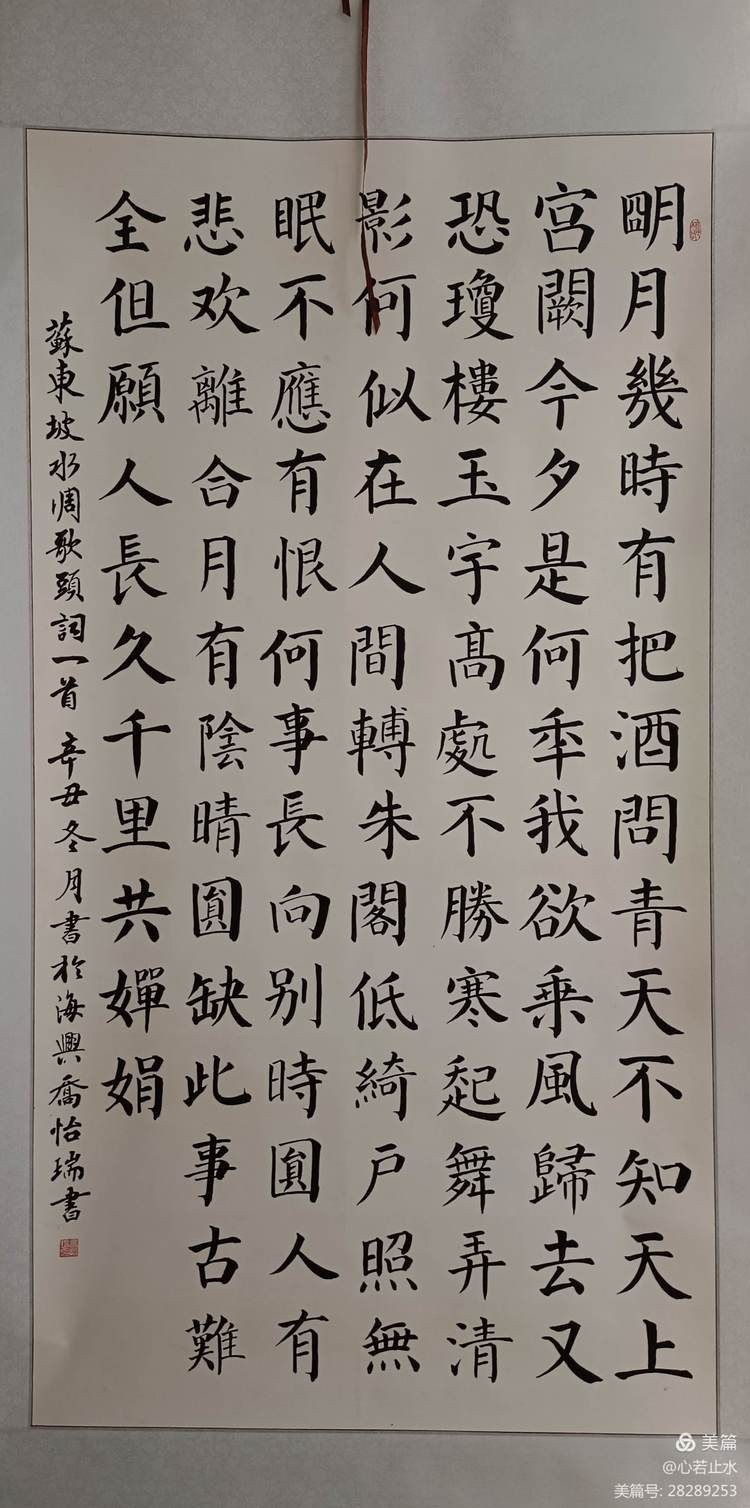 明月幾時有把酒問青天不知天上
宮闕今夕是何年我欲乘風歸去又
恐瓊樓玉宇高處不勝寒起舞弄清
影何似在人間轉朱閣低綺户照無
眠不應有恨何事長向别時圓人有
悲欢離合月有陰晴圓缺此事古難
全但願人長久千里共嬋娟
蘇東坡水調歌頭詞一首 辛丑冬月書於海興喬怡瑞書
美篇
@心若止水
美篇号: 28289253